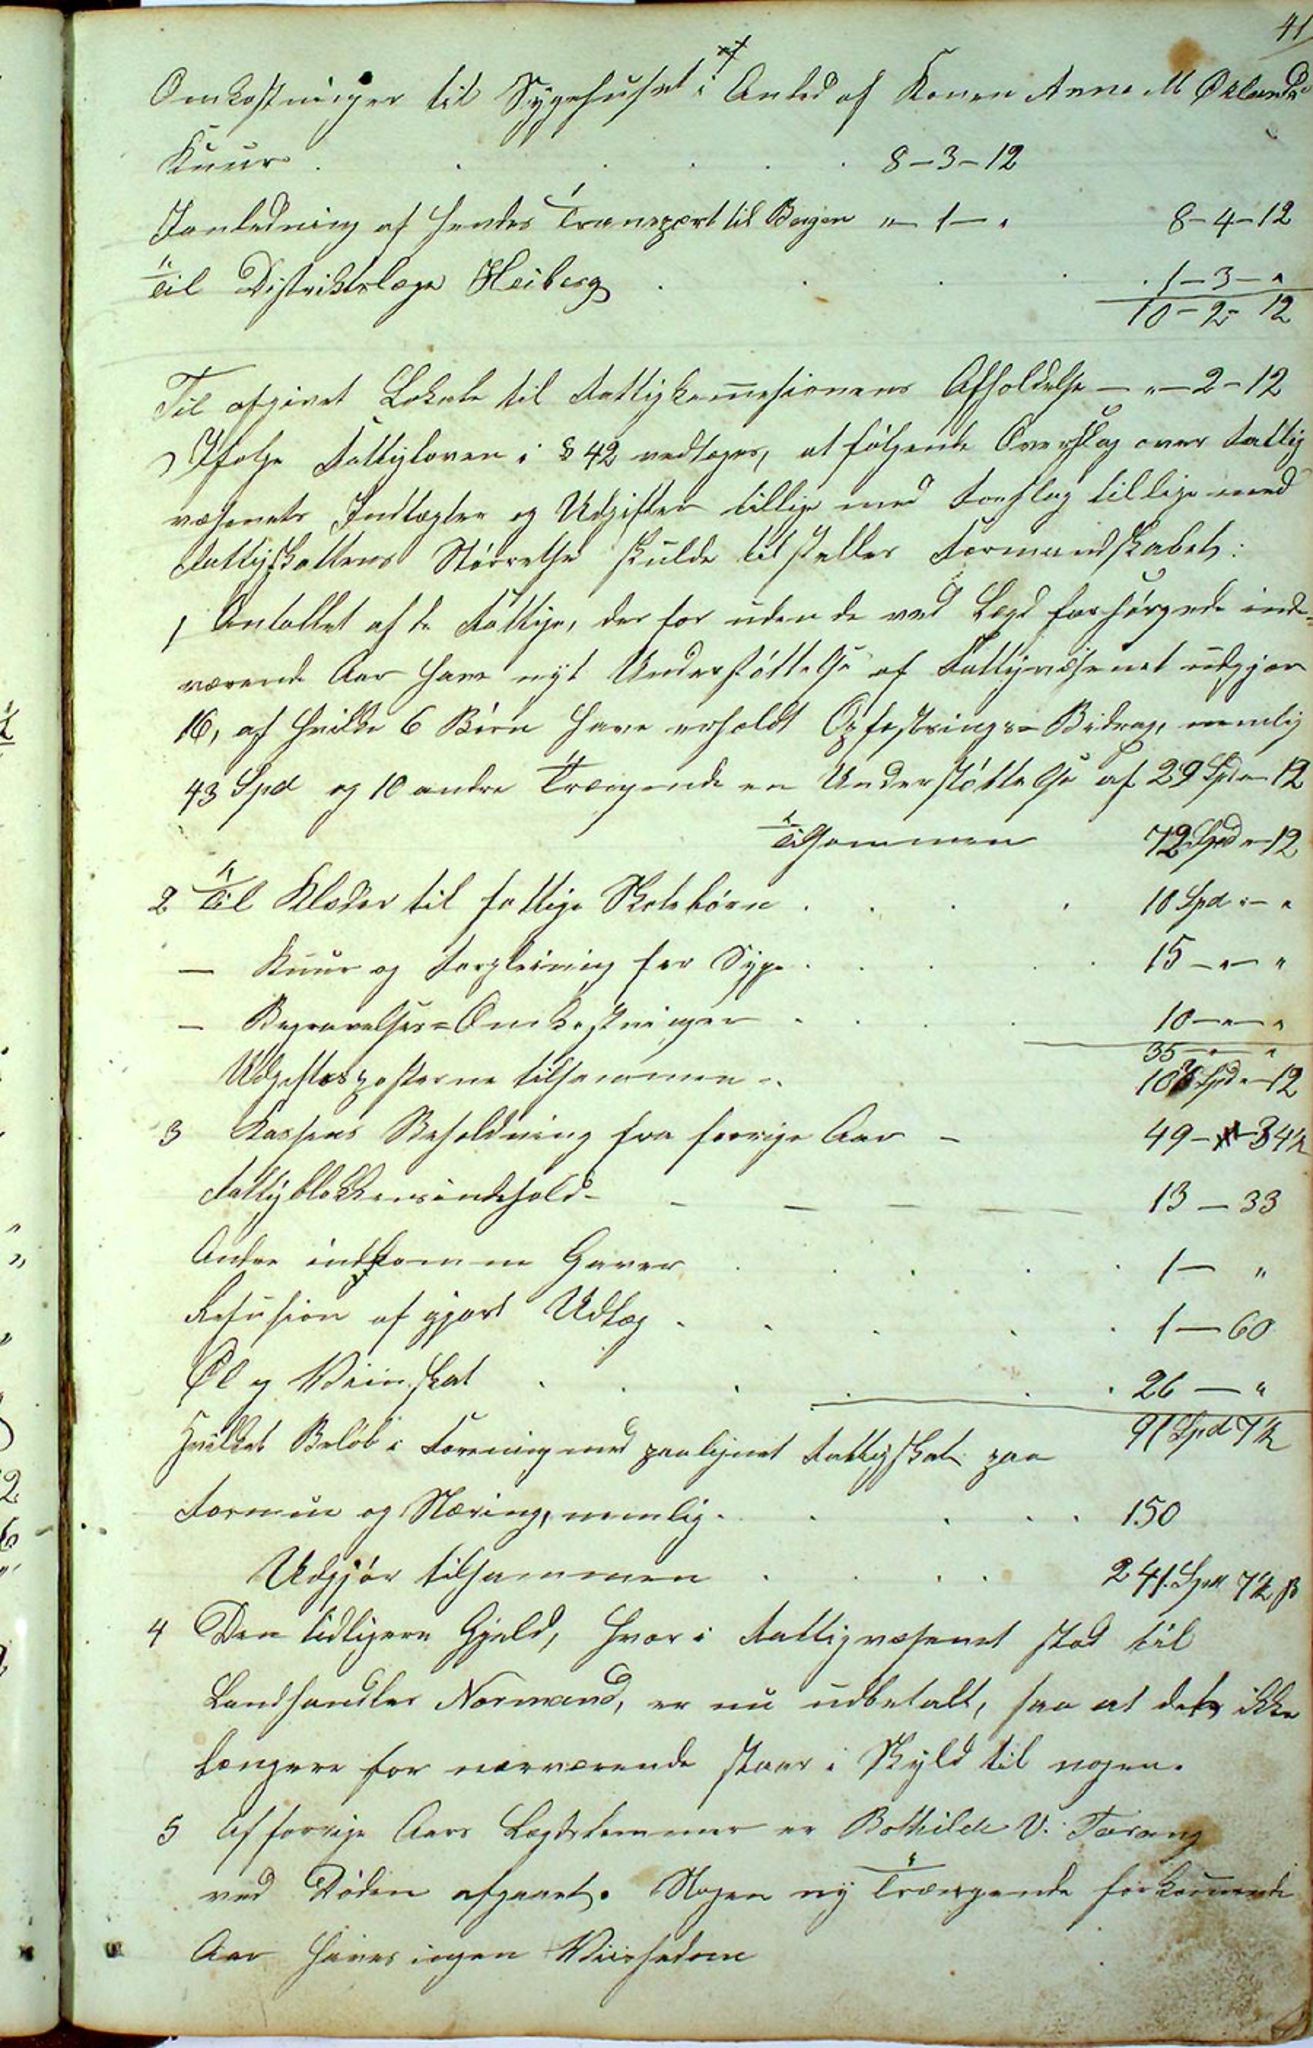 41
Omkostninger til Sygehuset i Anled af Konen Anna M Økland
Kuur . . . . 8-3-12
Ianledning af hendes Transport til Bergen "- 1 - " 8-4-12
Til Distriktslæge Heiberg . . . 1-3-"
10-2-12
Til afgivet Lokale til Fattigkommesionens Afholdelse - "-2-12
Ifølge Fattigloven i § 42 vedtoges, at følgende Overslag over Fattig
væsenets Indtægter og Udgifter tillige med Forslag tillige med
Fattigskattens Størrelse skulde tilstilles Formandskabet:
1 Antallet af de Fattige, der for uden de ved Lægd forsørgede inde-
værende Aar have nyt Understøttelse af Fattigvæsenet udgjør
16, af hvilke 6 Børn have erholdt Opfostrings-Bidrag, nemlig
43 Spd og 10 andre Trængende en Understøttelse af 29 Spd "- 12
Tilsammen 72 Spd "- 12
2 Til Klæder til fattige Skolebørn . . . 10 Spd "- "
- Kuur og Forpleining for Syge . . . . 15 - "- "
- Begravelses-Omkostninger . . . 10 - "- "
35 - "- "
Udgiftsposterne tilsammen . 108 Spd "- 12
3 Kassens Beholdning fra forrige Aar - 49 - 34½
Fattigblokkens indehold - - - - - 13 - 33
Andre indkomne Gaver . . . . . 1 - "
Refusion af gjort Udlæg . . . . . 1 - 60
Øl og Viinskat . . . . . . 26 - "
91 Spd 7½
Hvilket Beløb i Forening med paalignet Fattigskat paa
Formue og Næring, nemlig . . . . . 150
Udgjør tilsammen . . . . 241 Spd 7½ ß
4 Den tidligere Gjeld, hvor i Fattigvæsenet stod til
Landhandler Normand, er nu udbetalt, saa at det ikke
længere for nærværende staar i Skyld til nogen.
5 Af forrige Aars Lægdslemmer er Bothilde V.
ved Døden afgaaet. Nogen ny Trængende for kommende
Aar haves ingen Vished om